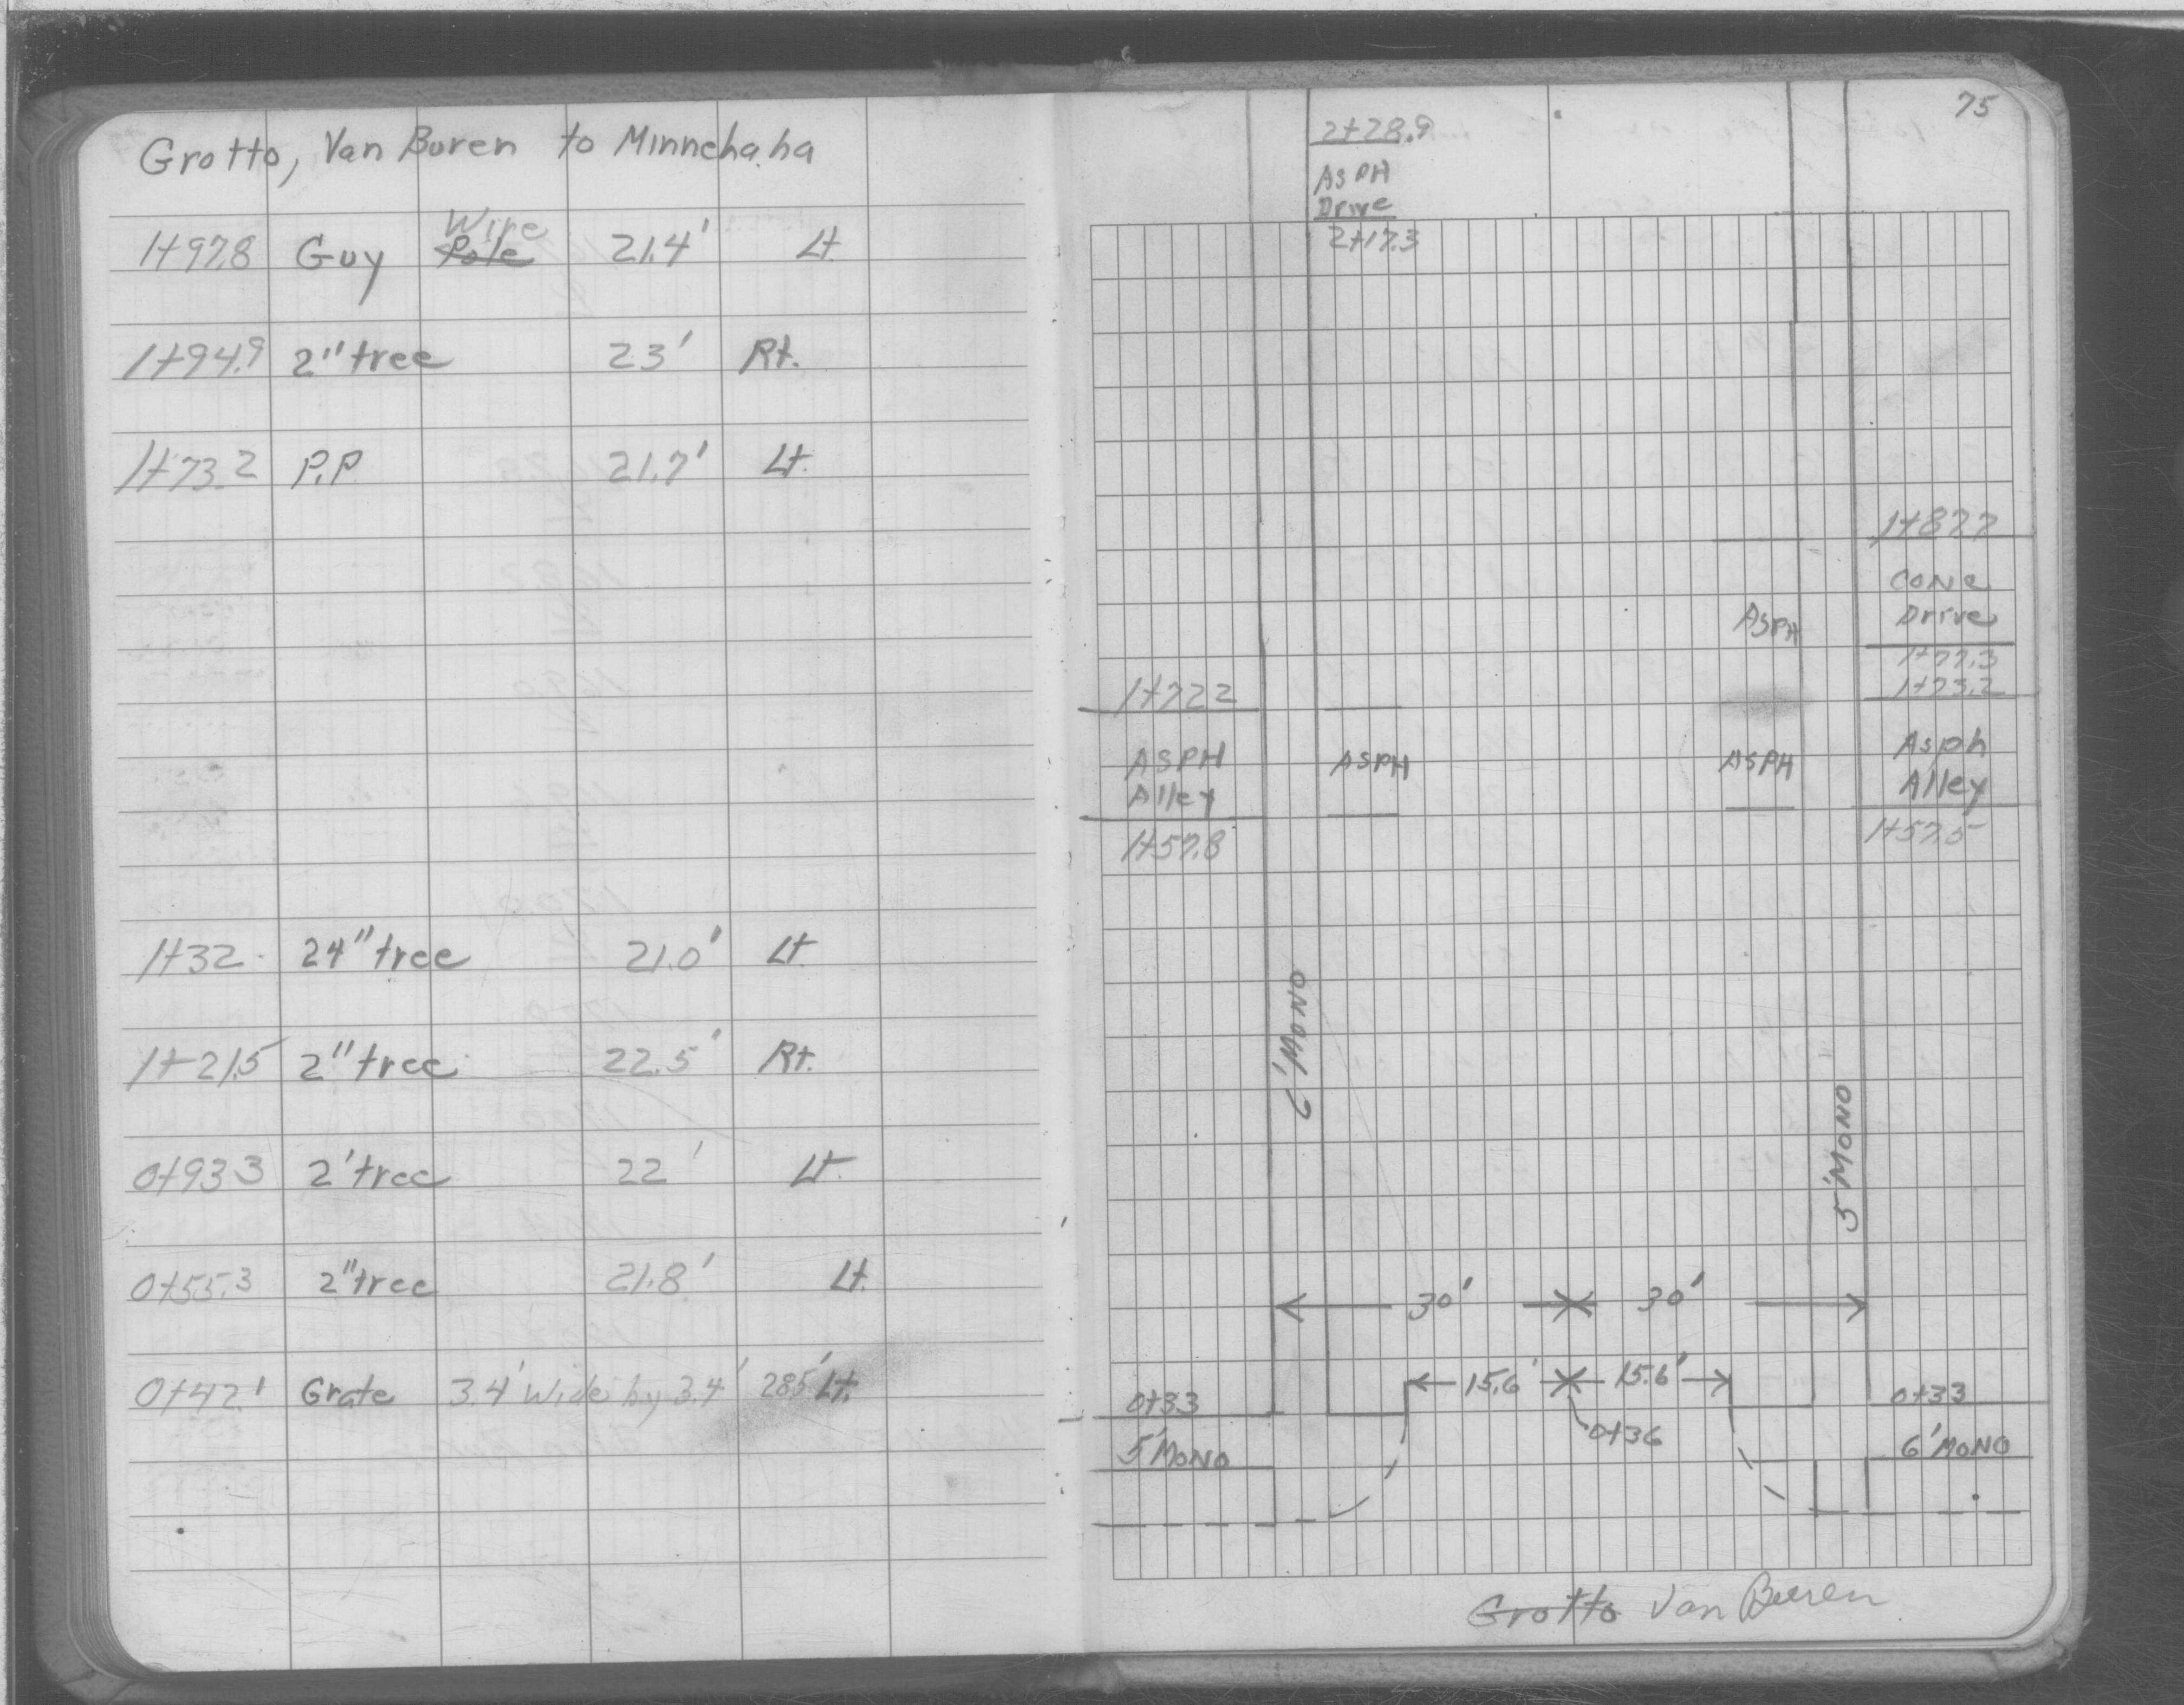 Grotto, Van Buren to Minnehaha
1+97.8 Guy Pole Wire 21.4' Lt.
1+94.9 2" tree 23' Rt.
1+73.2 P.P. 21.7' Lt.
1+32 24" tree 21.0' Lt
1+21.5 2" tree 22.5' Rt.
0+93.3 2' tree 22' Lt.
0+55.3 2" tree 21.8' Lt.
0+42.1 Grate 3.4' Wide by 3.4' 28.5' Lt.
75
2+28.9
ASPH
Drive
2+17.3
1+87.7
CONC
Drive
ASPH
1+77.3
1+72.2 1+73.2
ASPH
Alley
ASPH
ASPH
Asph
Alley
1+57.8 1+57.5
6' MONO
5' MONO
30' 30'
15.6' 15.6'
0+33 0+33
0+36
5' MONO 6' MONO
Grotto Van Buren